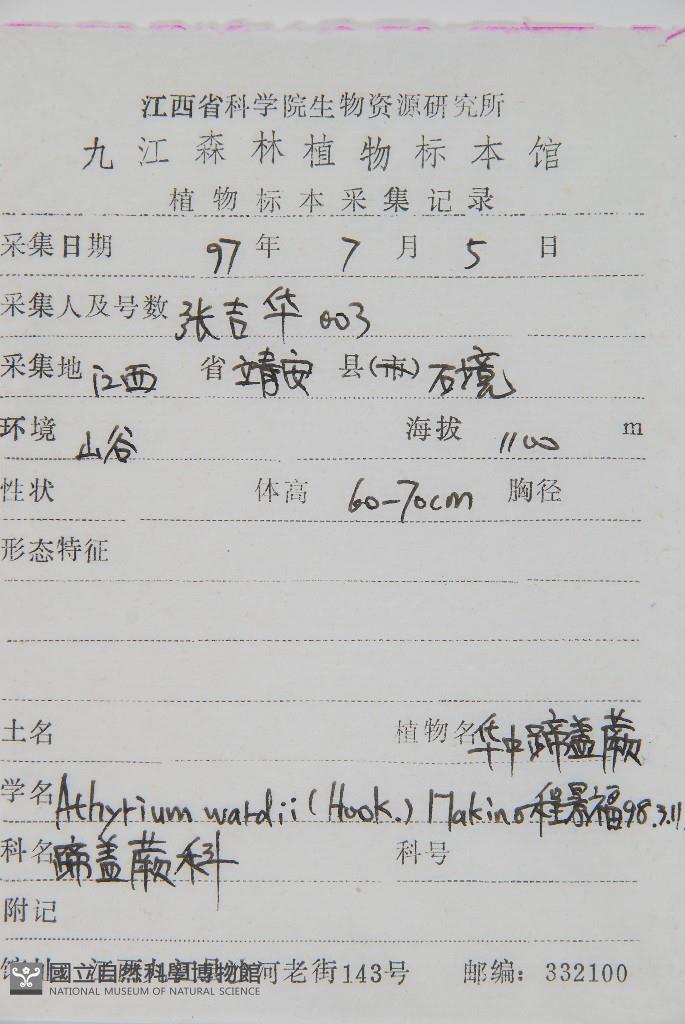 江西省科学院生物资源研究所
九江森林植物标本馆
植物标本采集记录
采集日期 97 年 7 月 5 日
采集人及号数 张吉华 003
采集地 江西 省 靖安 县(市) 石境
环境 山谷 海拔 1100 m
性状 体高 60-70cm 胸径
形态特征
土名 植物名 华中蹄盖蕨
学名 Athyrium wardii (Hook.) Makino 程景福 98.3.11
科名 蹄盖蕨科 科号
附记
河老街143号 邮编：332100
國立自然科學博物館
NATIONAL MUSEUM OF NATURAL SCIENCE